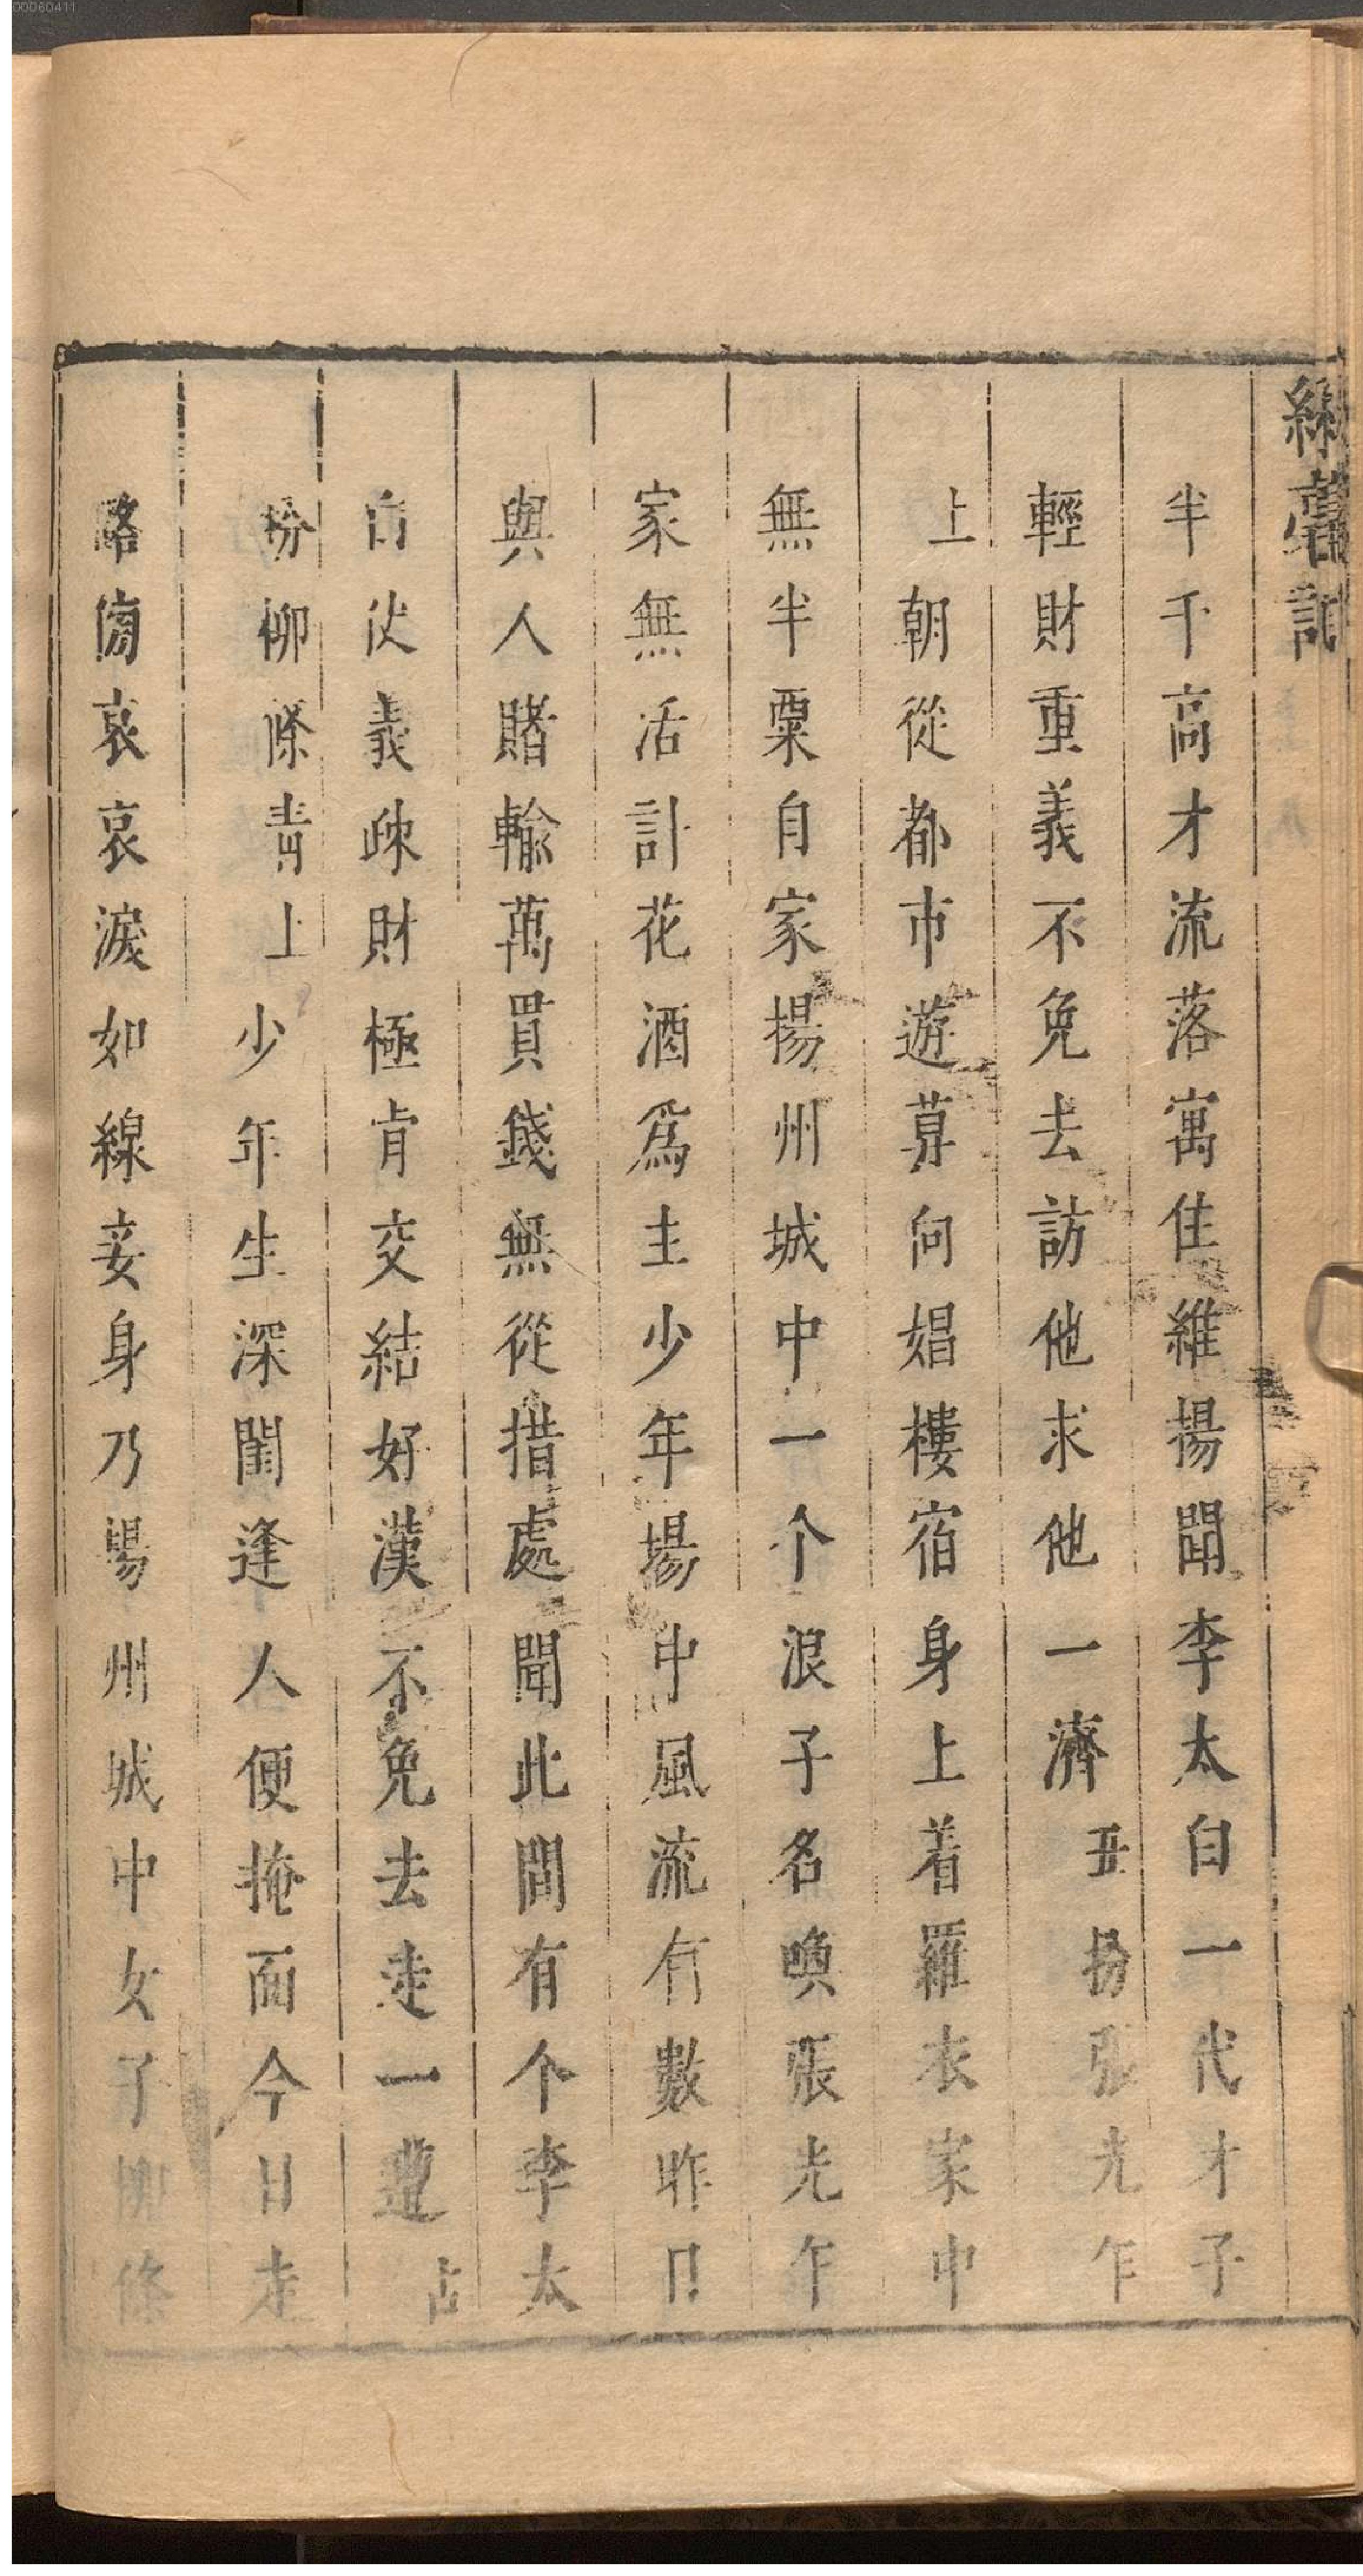 00060411
綵毫記
半千高才流落寓住維揚聞李太白一代才子
輕財重義不免去訪他求他一濟丑扮張光乍
上朝從都市遊莫向娼樓宿身上着羅衣家中
無半粟自家揚州城中一个浪子名喚張光乍
家無活計花酒爲主少年場中風流有數昨日
與人賭輸萬貫錢無從措處聞此間有个李太
白仗義疎財極肯交結好漢不免去走一遭占
扮柳條青上少年生深閨逢人便掩面今日走
路傍哀哀淚如線妾身乃揚州城中女子柳條